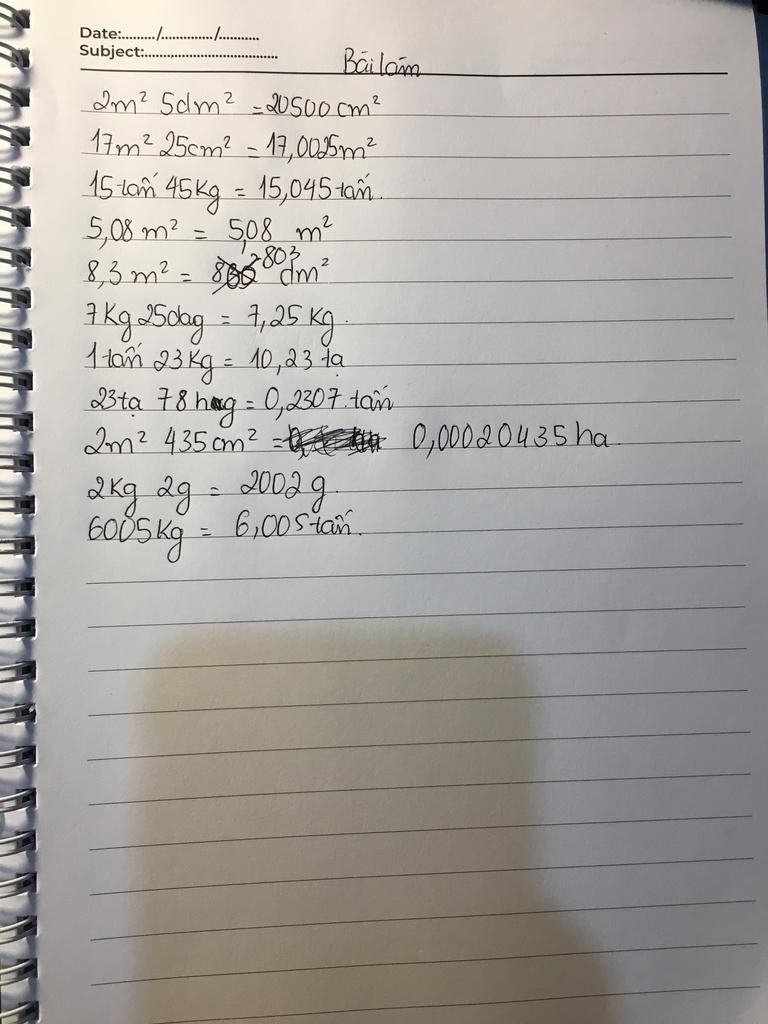 Date:........./............../...........
Subject:.......................................
Bài làm
2m² 5dm² = 20500 cm²
17m² 25cm² = 17,0025m²
15 tấn 45Kg = 15,045 tấn.
5,08 m² = 5,08 m²
8,3 m² = 803 dm²
7Kg 25dag = 7,25 Kg.
1 tấn 23Kg = 10,23 tạ
23 tạ 78 hg = 0,2307. tấn
2m² 435cm² = 0,00020435 ha.
2Kg 2g = 2002 g.
6005Kg = 6,005 tấn.